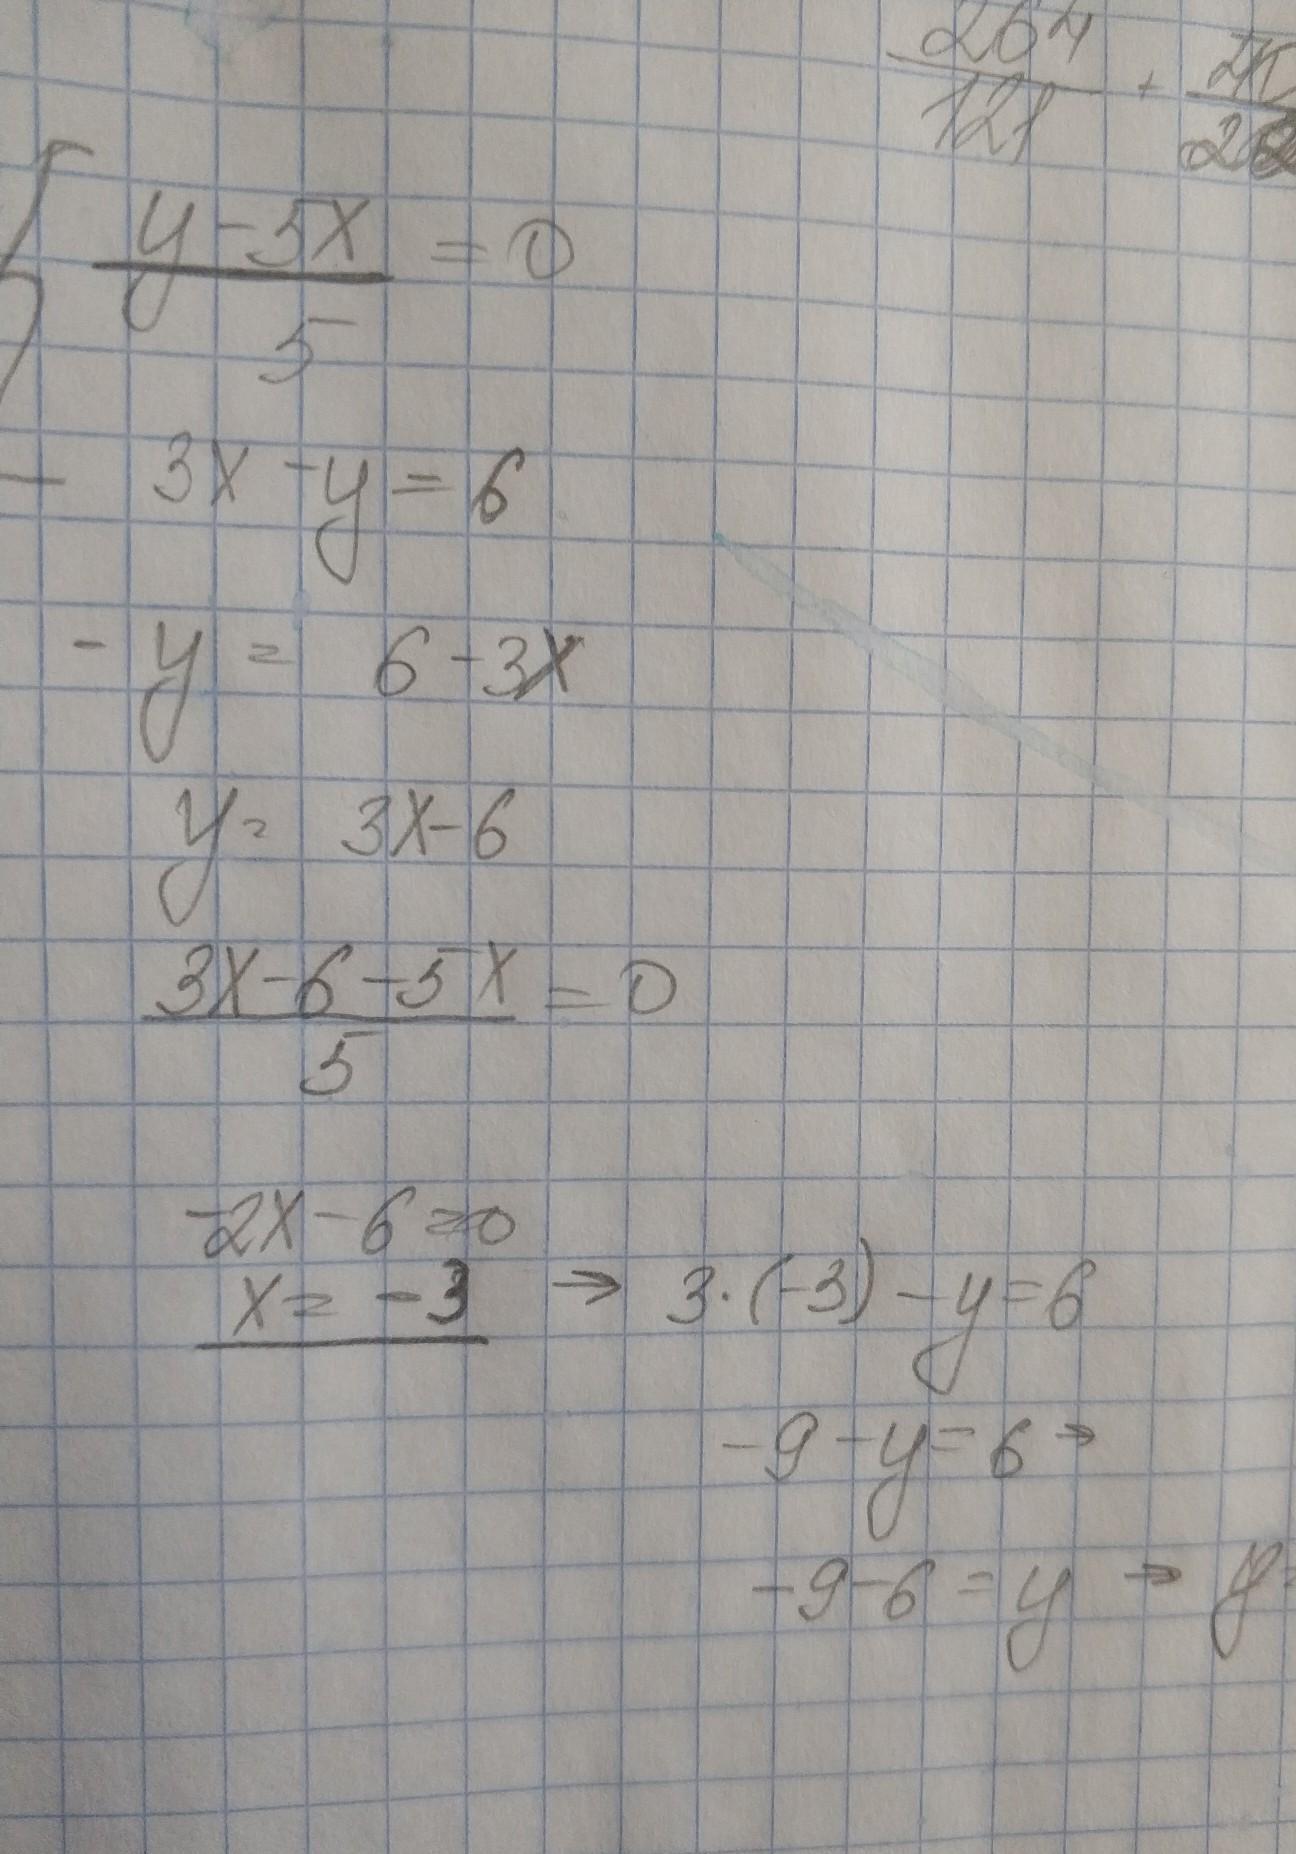 264
121 +
y - 5x = 0
5
3x - y = 6
- y = 6 - 3x
y = 3x - 6
3x - 6 - 5x = 0
5
-2x - 6 = 0
x = -3 → 3·(-3) - y = 6
-9 - y = 6 →
-9 - 6 = y → y =